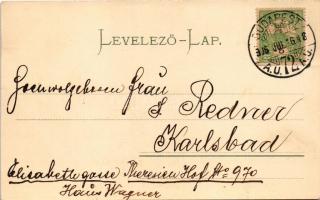 LEVELEZŐ-LAP.
BUDAPEST
72
Hochwolgeboren Frau
S Redner
Karlsbad
Elisabethgasse Theresien Hof No 970
Haus Wagner